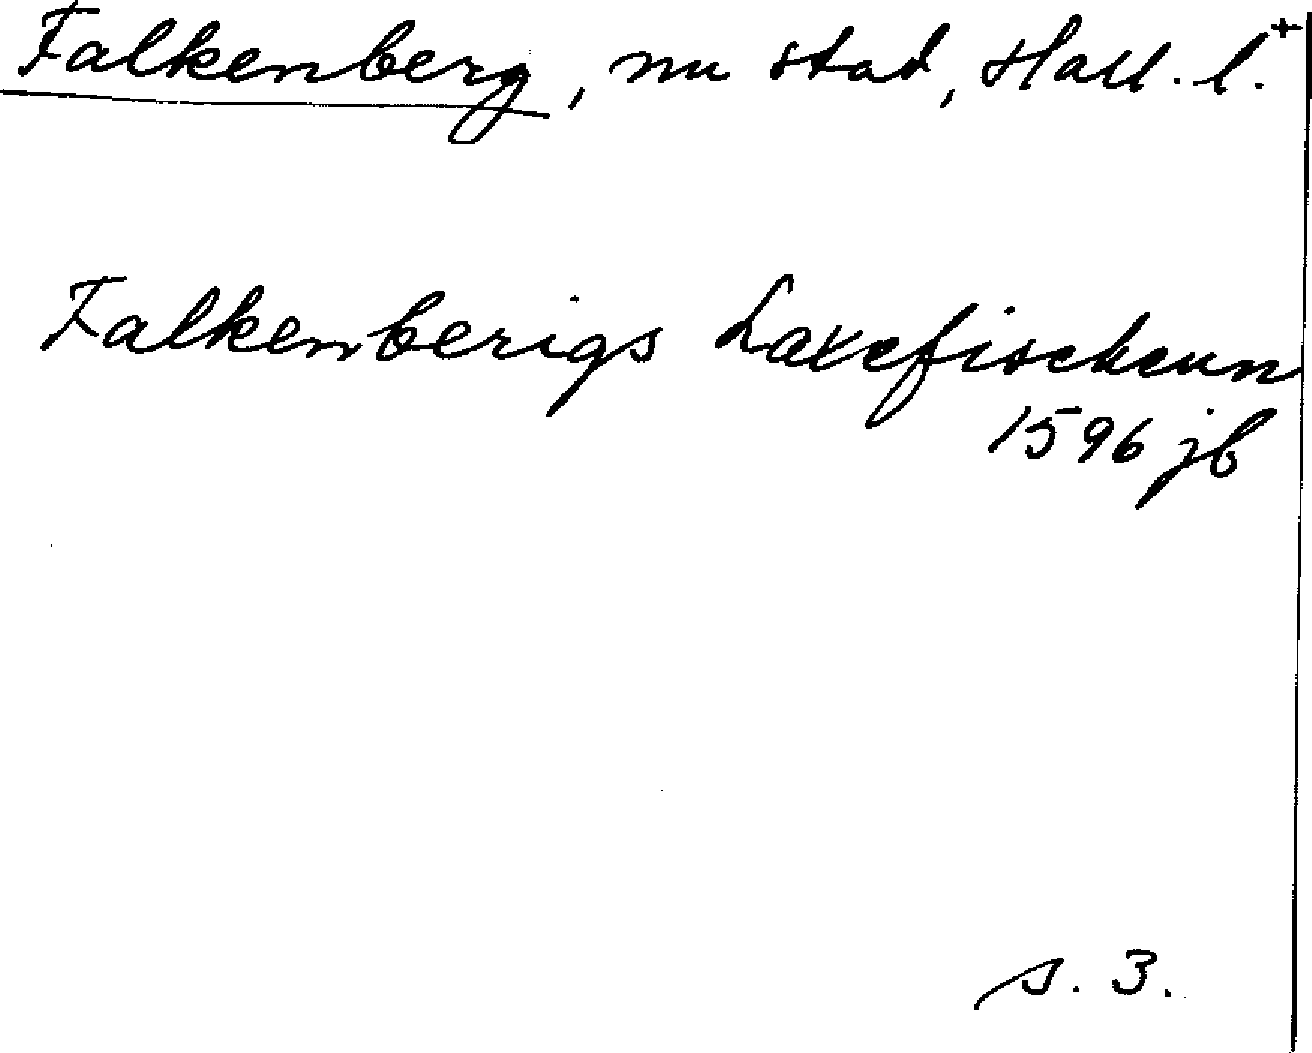 Falkenberg, nu stad, Hall. l.+
Falkenberigs Laxefischeun
1596 jb
s. 3.